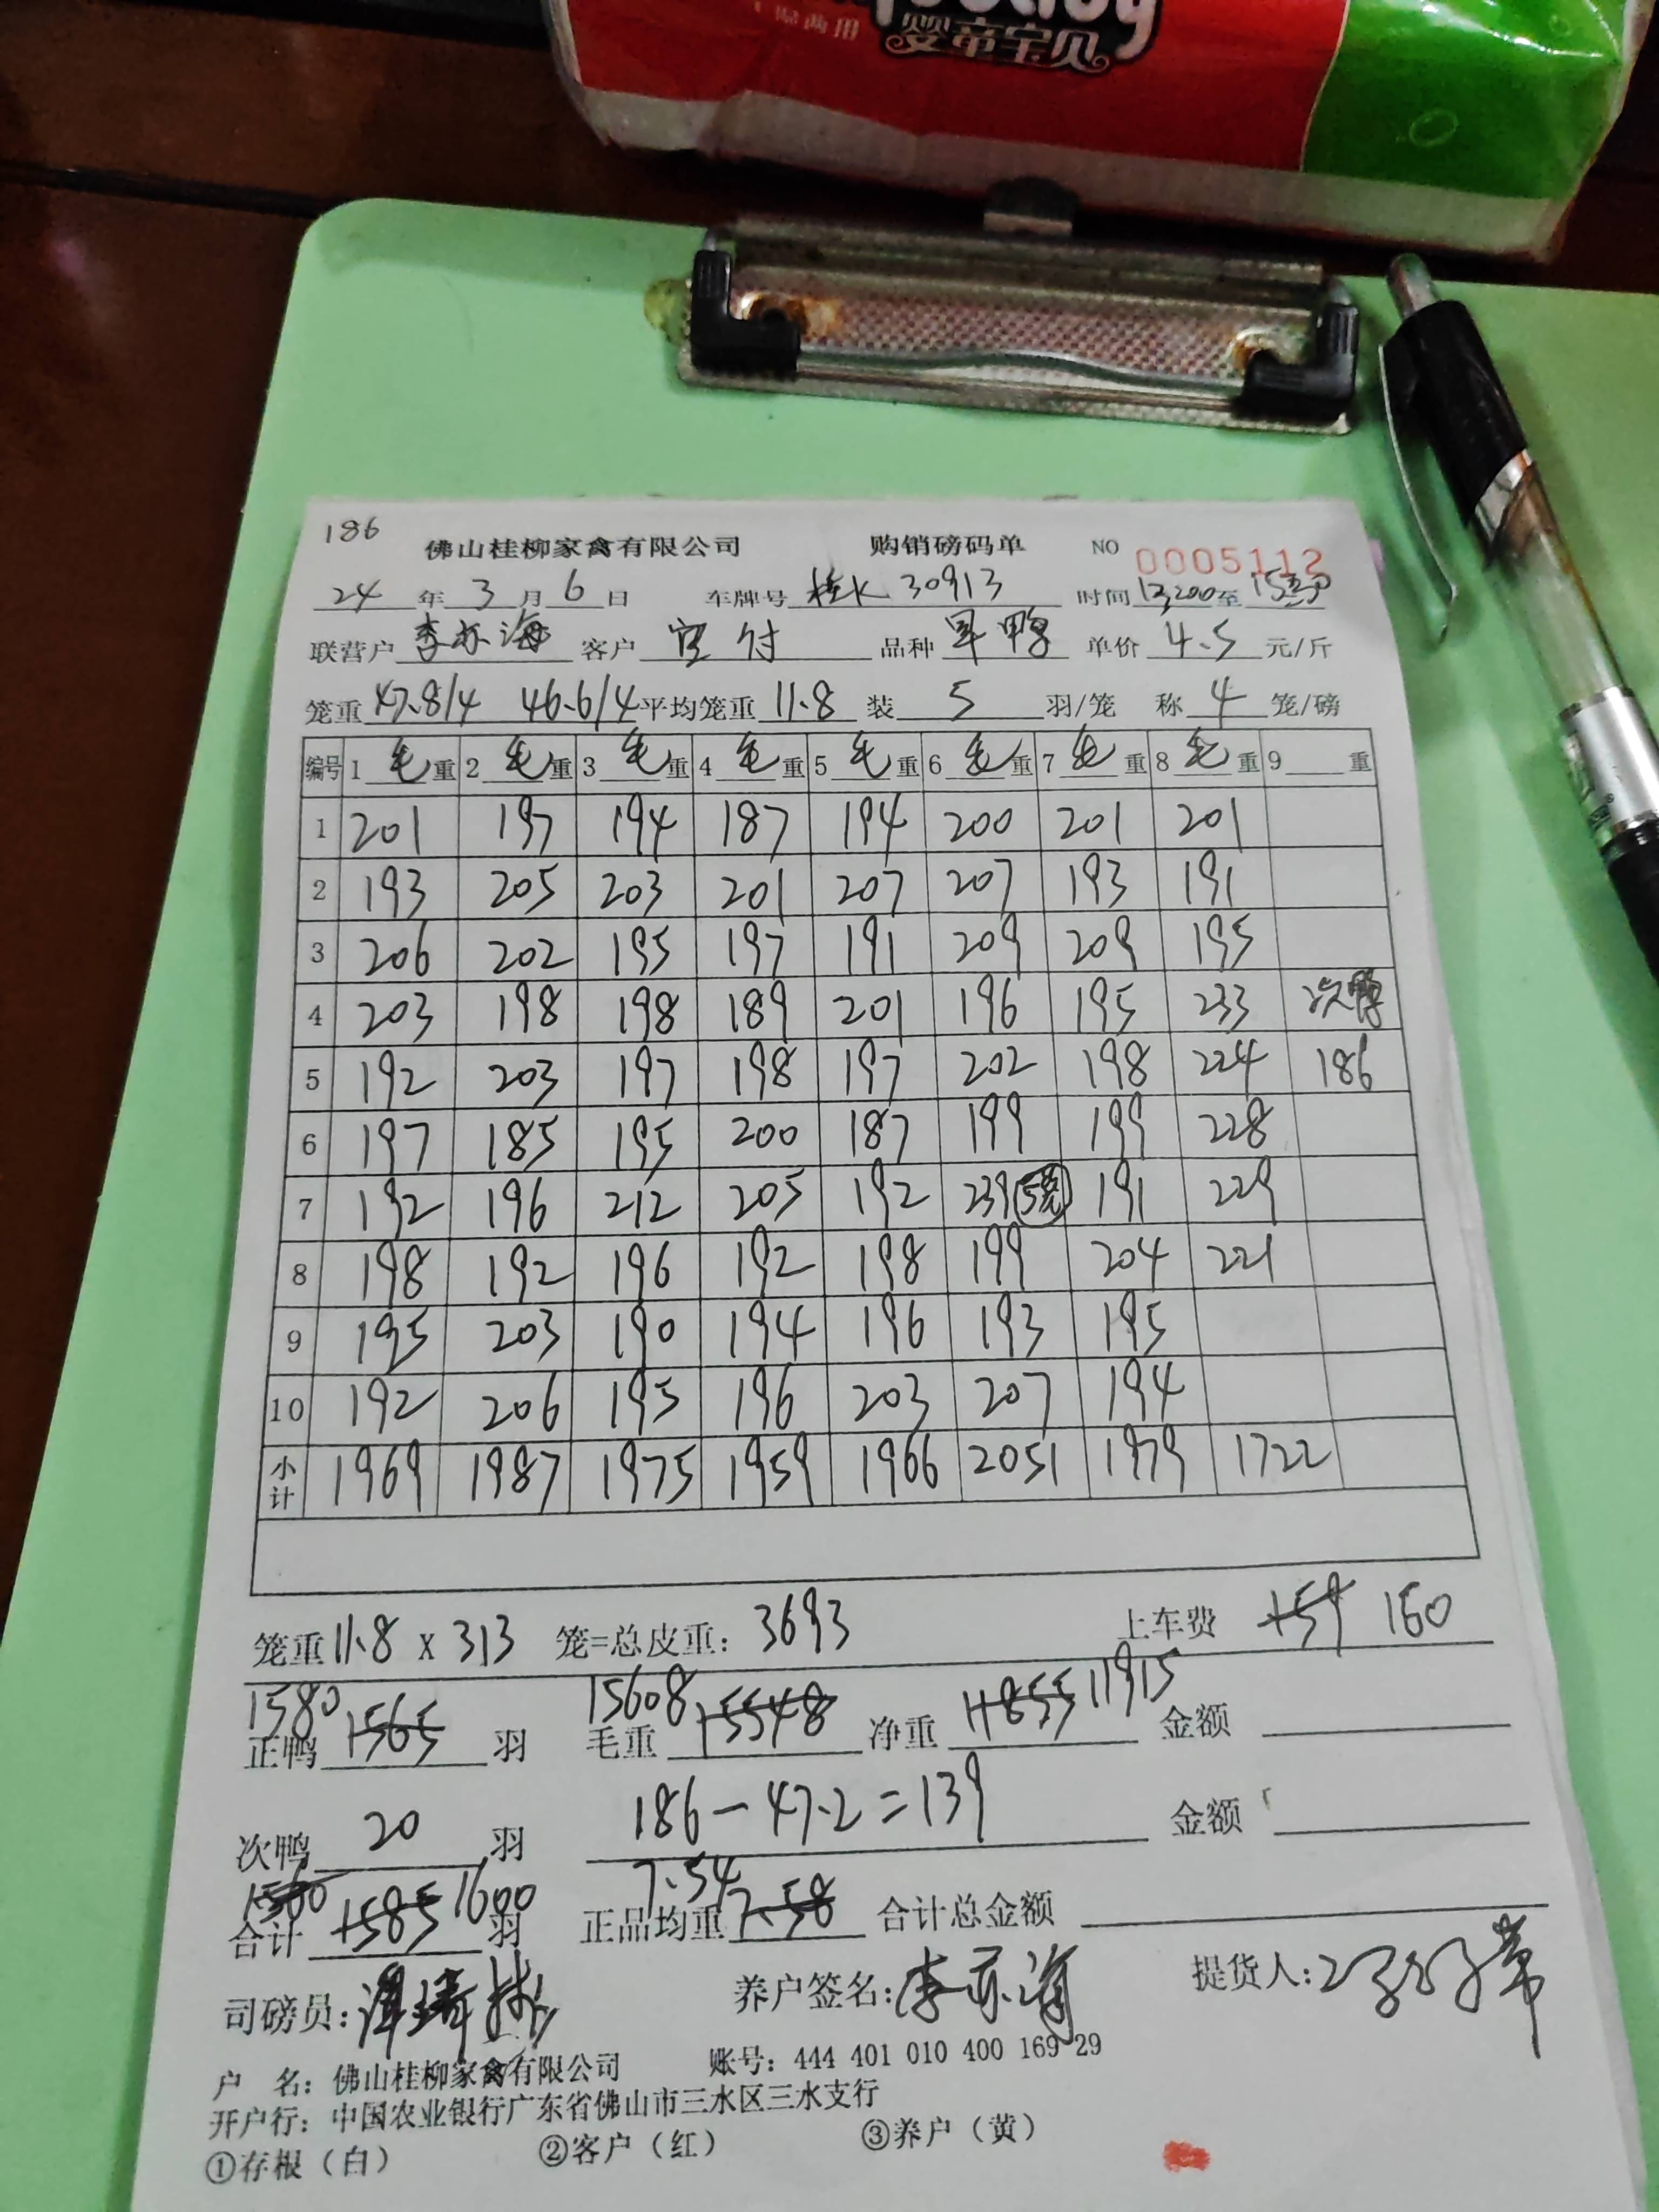 婴童宝贝
186
佛山桂柳家禽有限公司 购销磅码单 NO 0005112
24 年 3 月 6 日 车牌号 桂K 30913 时间 至
联营户 李亦海 客户 宜付 品种 旱鸭 单价 4.5 元/斤
笼重 47.8/4 46.6/4 平均笼重 11.8 装 5 羽/笼 称 4 笼/磅
编号 1 毛 重 2 毛 重 3 毛 重 4 毛 重 5 毛 重 6 毛 重 7 毛 重 8 毛 重 9 重
1 201 197 194 187 194 200 201 201
2 193 205 203 201 207 207 193 191
3 206 202 195 197 191 209 209 195
4 203 198 198 189 201 196 195 233 次鸭
5 192 203 197 198 197 202 198 224 186
6 197 185 195 200 187 199 199 228
7 192 196 212 205 192 239 191 229
8 198 192 196 192 198 199 204 221
9 195 203 190 194 196 193 195
10 192 206 195 196 203 207 194
小计 1969 1987 1975 1959 1966 2051 1979 1722
笼重 11.8 x 313 笼=总皮重: 3693 上车费 159 160
1580 15608 11915
正鸭 1565 羽 毛重 15548 净重 11855 金额
次鸭 20 羽 186-47.2=139 金额
1560 1600 7.54
合计 1585 羽 正品均重 7.58 合计总金额
司磅员: 养户签名: 李亦海 提货人:
户 名: 佛山桂柳家禽有限公司 账号: 444 401 010 400 169 29
开户行: 中国农业银行广东省佛山市三水区三水支行
①存根（白） ②客户（红） ③养户（黄）